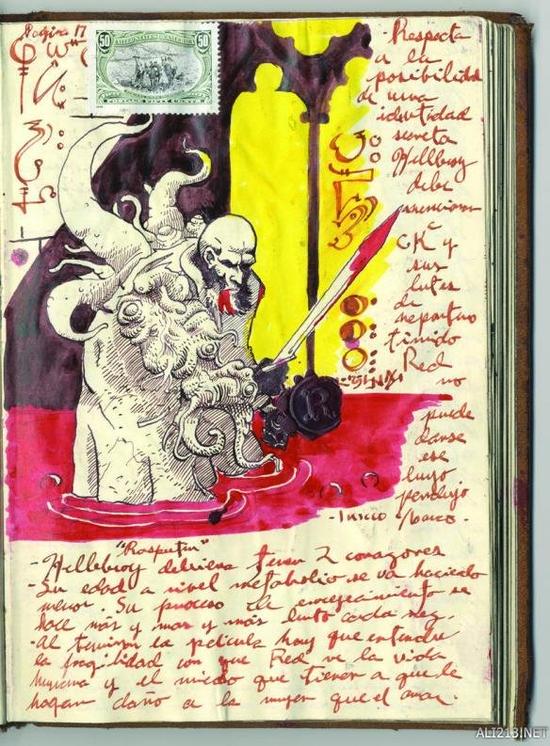 Página 17
50
50
- Respecto
a la
posibilidad
de una
identidad
secreta
Hellboy
debe
mencionar
CK y
sus
lentes
de
reportero
tímido
Red
no
puede
darse
ese
lujo
R
- Inicio
"Rasputin"
- Hellboy debiera tener 2 corazones
- Su edad a nivel metabolico se va haciendo
menor. Su proceso de envejecimiento se
hace más y mas y más lento cada vez.
- Al la película hay que entender
la fragilidad con que Red ve la vida
humana y el miedo que tiene a que le
hagan daño a la mujer que el ama.
ALI213.NET